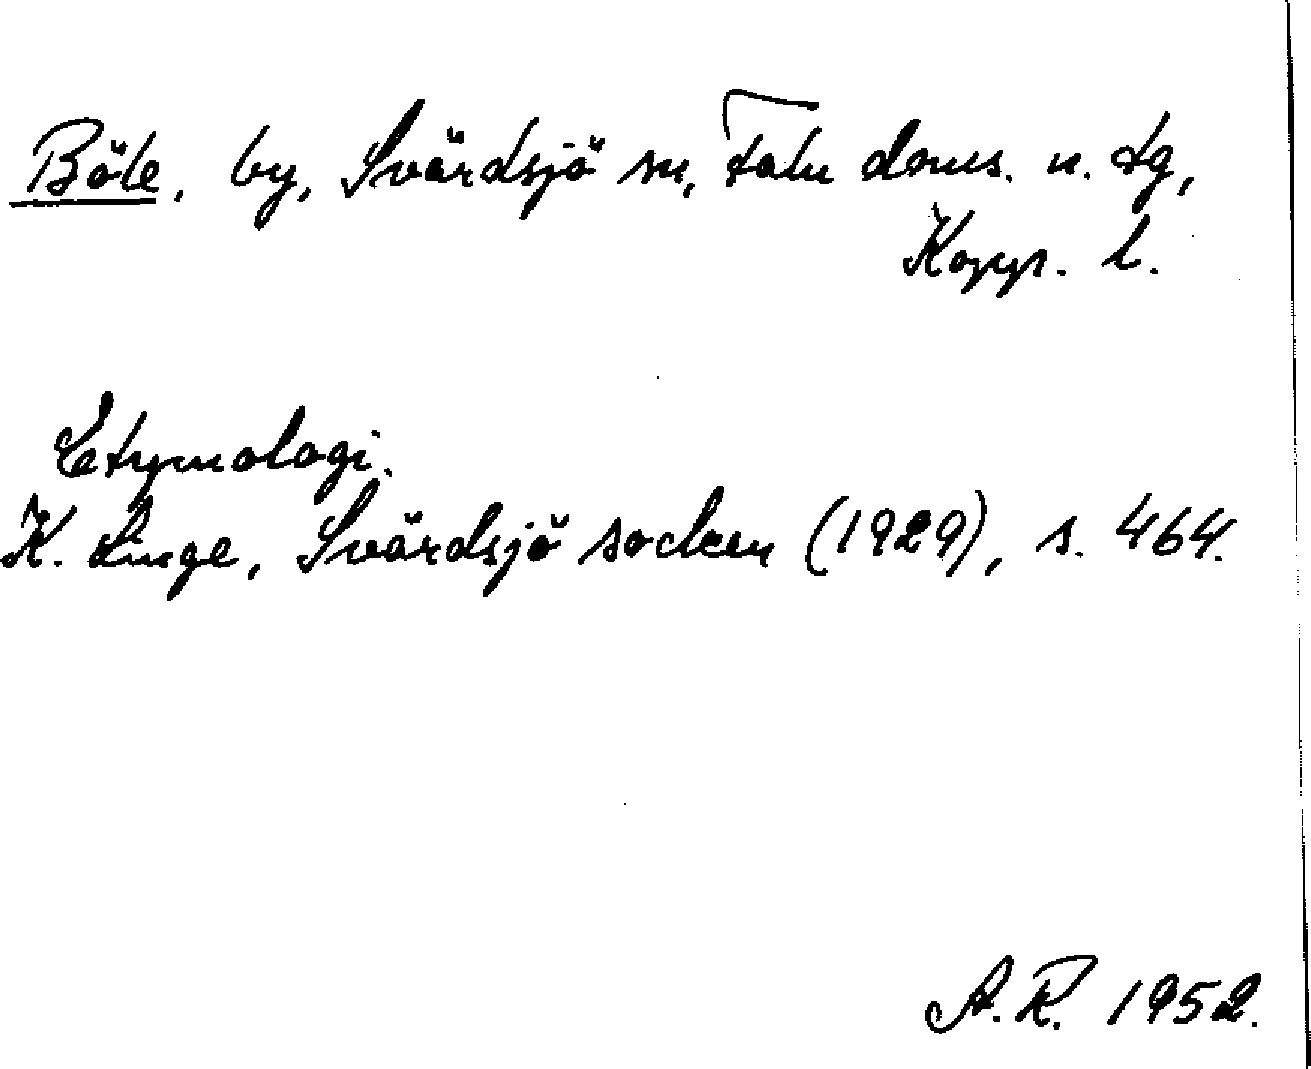 Böle, by, Svärdsjö sn, Falu doms. n. tg,
Kopp. l.
Etymologi.
K. Linge, Svärdsjö socken (1929), s. 464.
A. R. 1952.